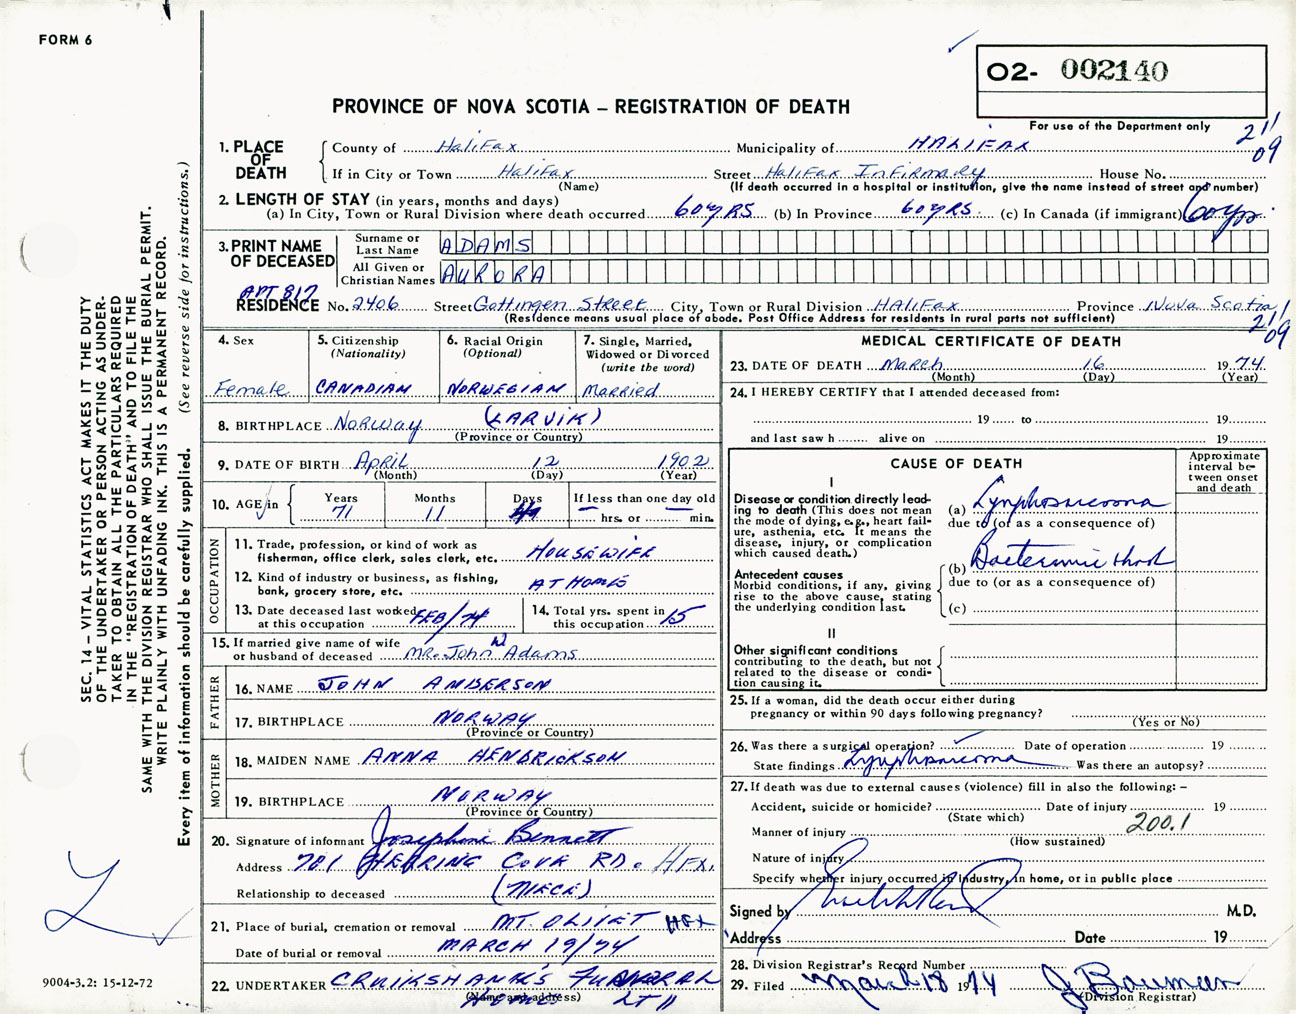 FORM 6
O2- 002140
PROVINCE OF NOVA SCOTIA – REGISTRATION OF DEATH
For use of the Department only
211
09
1. PLACE OF DEATH
County of Halifax Municipality of HALIFAX
If in City or Town Halifax Street Halifax Infirmary House No.
(Name) (If death occurred in a hospital or institution, give the name instead of street and number)
2. LENGTH OF STAY (in years, months and days)
(a) In City, Town or Rural Division where death occurred 60 yrs (b) In Province 60 yrs (c) In Canada (if immigrant) 60 yrs.
3. PRINT NAME OF DECEASED
Surname or Last Name ADAMS
All Given or Christian Names AURORA
APT 817
RESIDENCE No. 2406 Street Gottingen Street City, Town or Rural Division HALIFAX Province Nova Scotia
(Residence means usual place of abode. Post Office Address for residents in rural parts not sufficient)
211
09
4. Sex
Female
5. Citizenship (Nationality)
CANADIAN
6. Racial Origin (Optional)
NORWEGIAN
7. Single, Married, Widowed or Divorced (write the word)
Married
8. BIRTHPLACE Norway (LARVIK)
(Province or Country)
9. DATE OF BIRTH April 12 1902
(Month) (Day) (Year)
10. AGE in Years Months Days If less than one day old
71 11 — hrs. or — min.
OCCUPATION
11. Trade, profession, or kind of work as fisherman, office clerk, sales clerk, etc. HOUSEWIFE
12. Kind of industry or business, as fishing, bank, grocery store, etc. AT HOME
13. Date deceased last worked at this occupation FEB/74
14. Total yrs. spent in this occupation 15
15. If married give name of wife or husband of deceased Mr. John W Adams
FATHER
16. NAME JOHN ANDERSON
17. BIRTHPLACE NORWAY
(Province or Country)
MOTHER
18. MAIDEN NAME ANNA HENDRICKSON
19. BIRTHPLACE NORWAY
(Province or Country)
20. Signature of informant Josephine Bennett
Address 781 HERRING COVE RD. HFX.
Relationship to deceased (NIECE)
21. Place of burial, cremation or removal MT. OLIVET HFX
Date of burial or removal MARCH 19/74
22. UNDERTAKER CRUIKSHANK'S FUNERAL
(Name and address)
MEDICAL CERTIFICATE OF DEATH
23. DATE OF DEATH March 16 1974.
(Month) (Day) (Year)
24. I HEREBY CERTIFY that I attended deceased from:
19 to 19
and last saw h alive on 19
CAUSE OF DEATH
Approximate interval between onset and death
I
Disease or condition directly leading to death (This does not mean the mode of dying, e.g., heart failure, asthenia, etc. It means the disease, injury, or complication which caused death.)
(a) Lymphosarcoma
due to (or as a consequence of)
Antecedent causes
Morbid conditions, if any, giving rise to the above cause, stating the underlying condition last.
(b) Bacteremic shock
due to (or as a consequence of)
(c)
II
Other significant conditions
contributing to the death, but not related to the disease or condition causing it.
25. If a woman, did the death occur either during pregnancy or within 90 days following pregnancy?
(Yes or No)
26. Was there a surgical operation? ✓ Date of operation 19
State findings Lymphosarcoma Was there an autopsy?
27. If death was due to external causes (violence) fill in also the following: –
Accident, suicide or homicide? Date of injury 19
(State which)
Manner of injury 200.1
(How sustained)
Nature of injury
Specify whether injury occurred in industry, in home, or in public place
Signed by M.D.
Address Date 19
28. Division Registrar's Record Number
29. Filed March 18 1974 J Bauman
(Division Registrar)
SEC. 14 – VITAL STATISTICS ACT MAKES IT THE DUTY
OF THE UNDERTAKER OR PERSON ACTING AS UNDER-
TAKER TO OBTAIN ALL THE PARTICULARS REQUIRED
IN THE "REGISTRATION OF DEATH" AND TO FILE THE
SAME WITH THE DIVISION REGISTRAR WHO SHALL ISSUE THE BURIAL PERMIT.
WRITE PLAINLY WITH UNFADING INK. THIS IS A PERMANENT RECORD.
Every item of information should be carefully supplied. (See reverse side for instructions.)
9004-3.2: 15-12-72